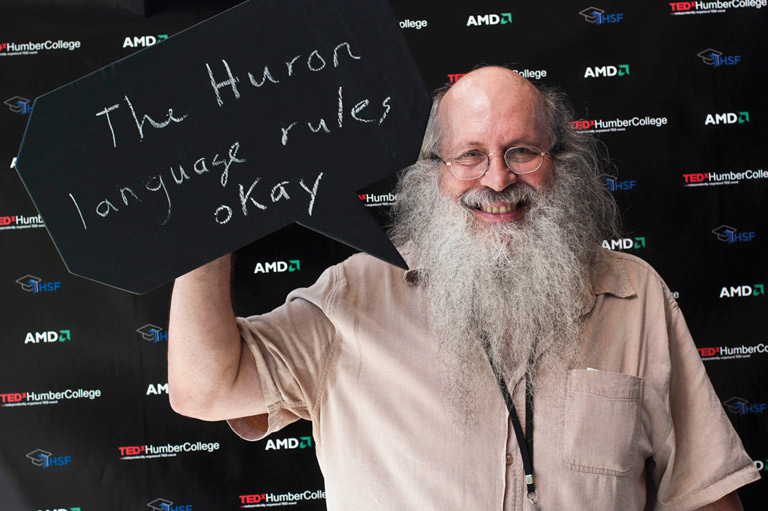 The Huron
language rules
okay
TEDxHumberCollege
AMD
HSF
TEDxHumberCollege
TEDxHumberCollege
AMD
HSF
AMD
HSF
AMD
TEDxHumberCollege
HSF
TEDxHumberCollege
AMD
AMD
HSF
HSF
AMD
AMD
TEDxHumberCollege
TEDxHumberCollege
HSF
TEDxHumberCollege
AMD
TEDxHumberCollege
HSF